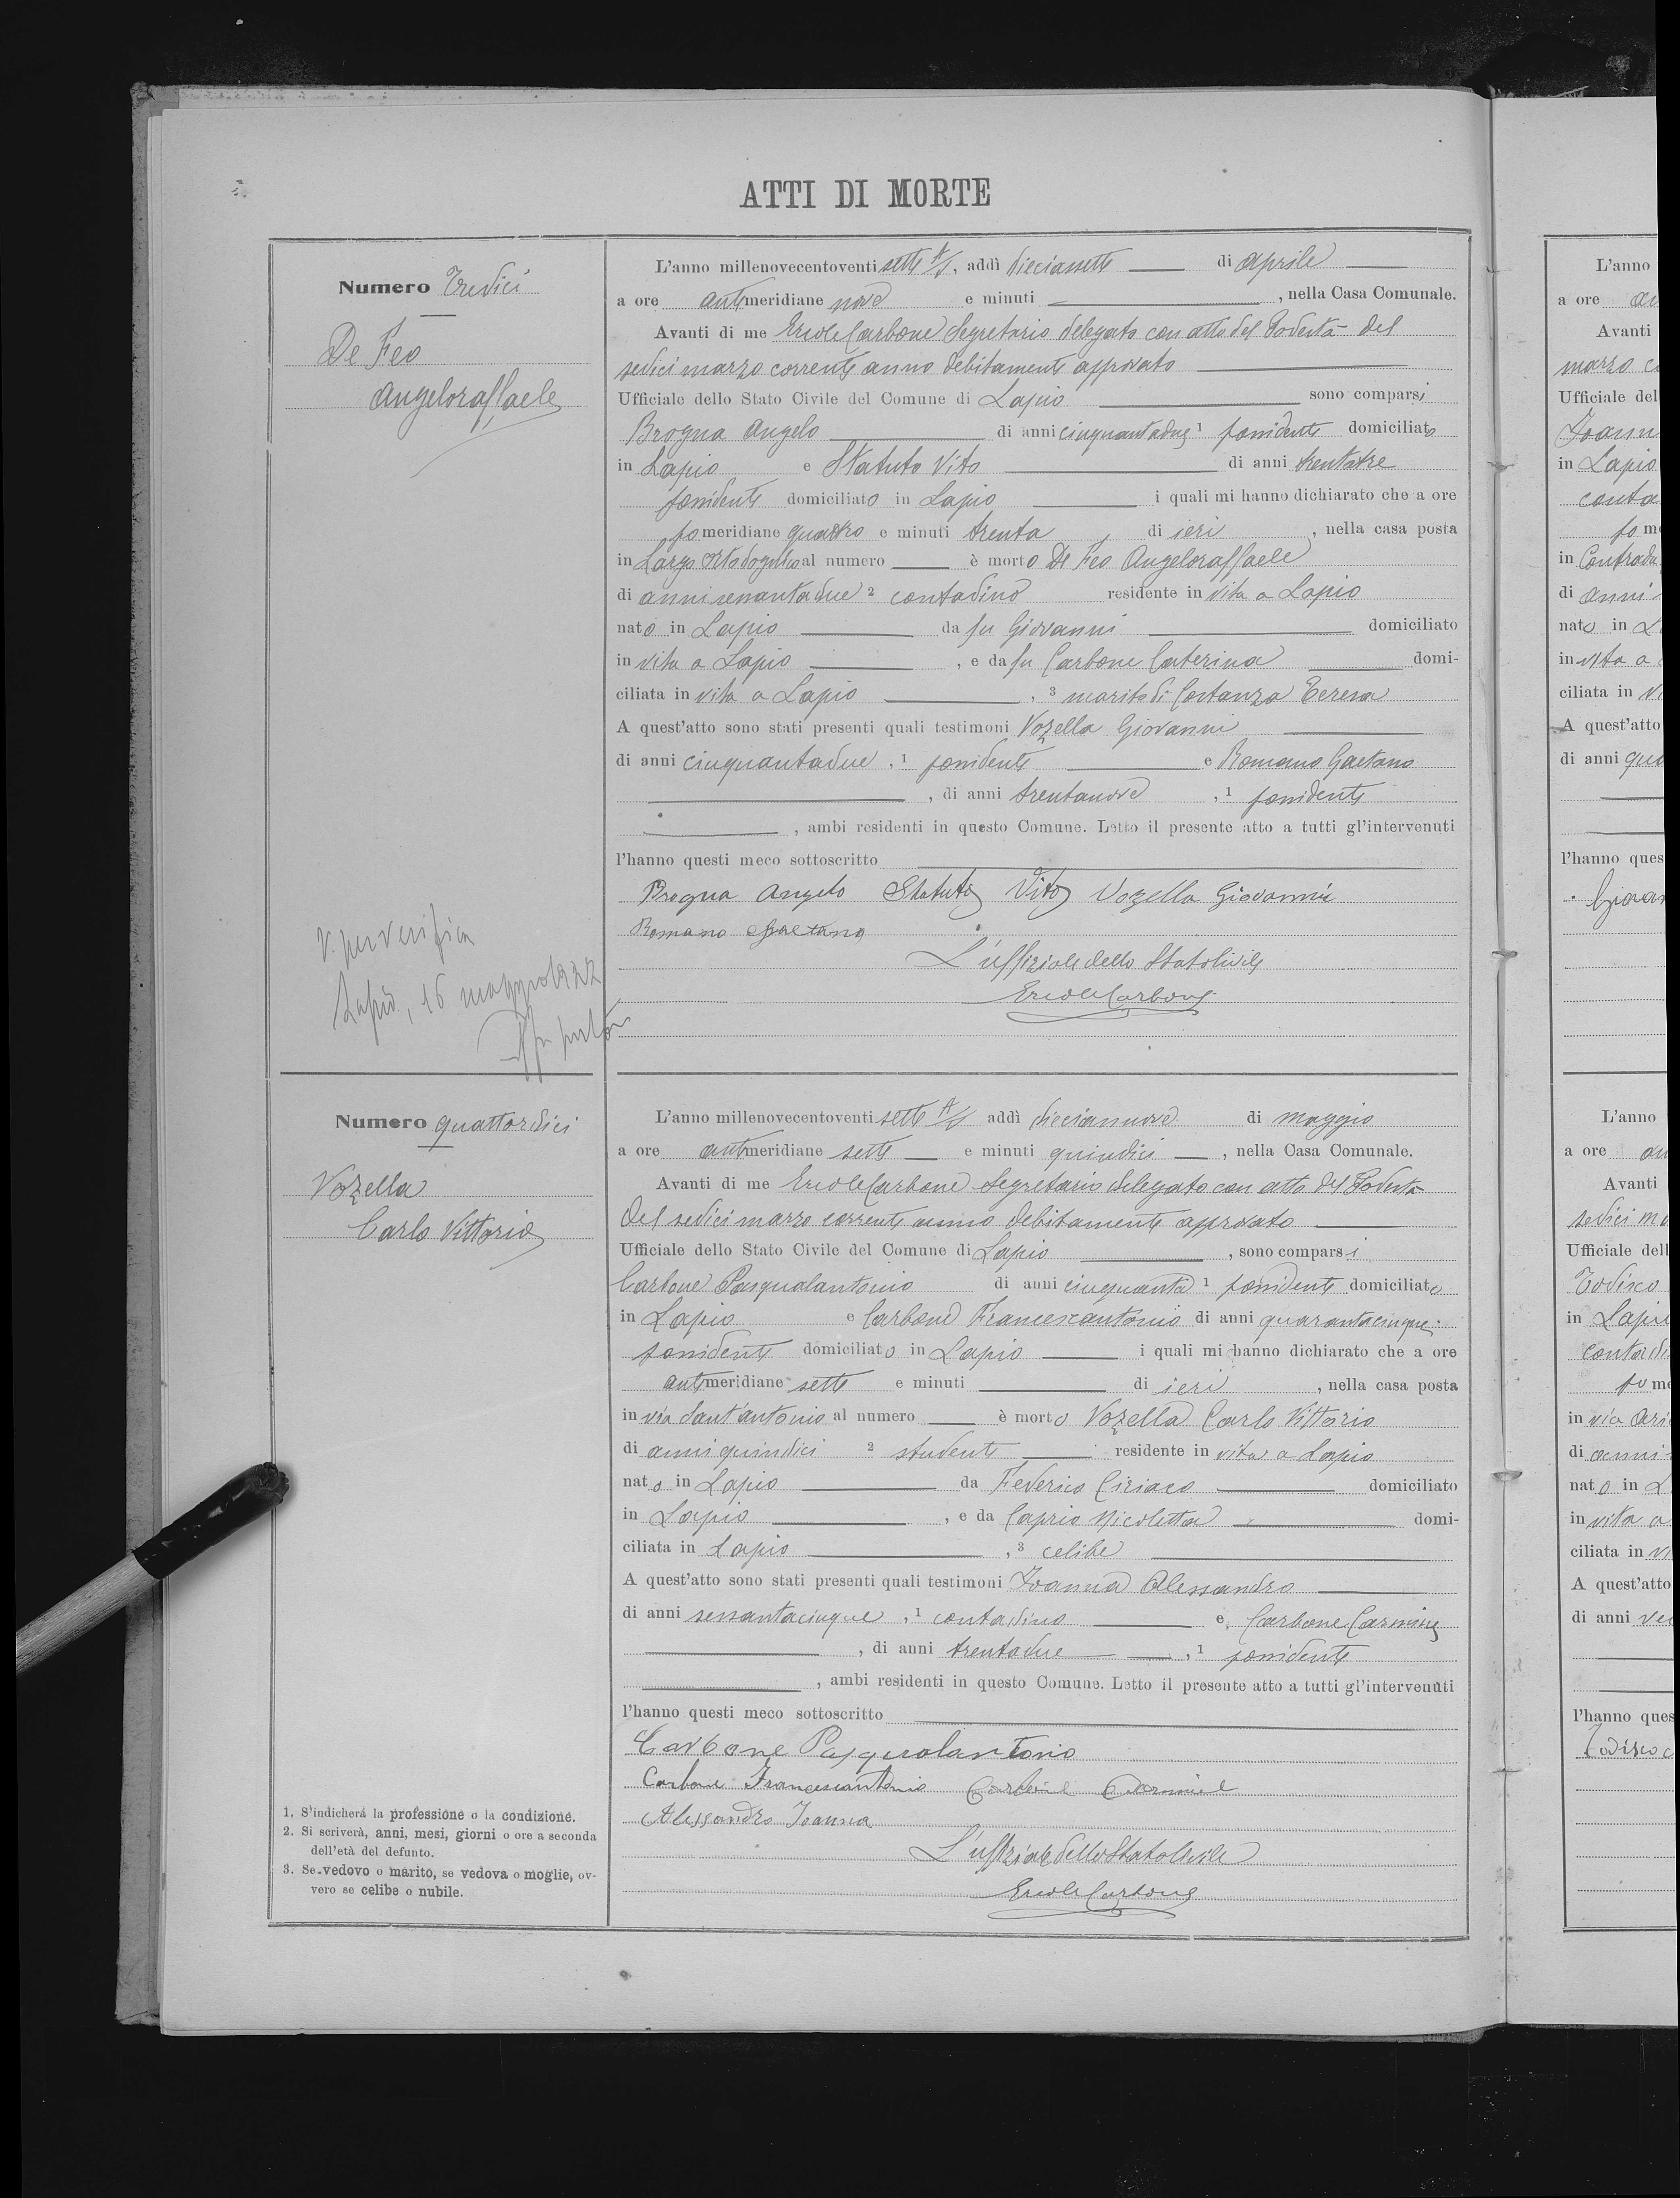 ATTI DI MORTE
Numero Tredici
De Feo
Angeloraffaele
L'anno millenovecentoventi sette A/V, addì diciassette di Aprile
a ore antimeridiane nove e minuti , nella Casa Comunale.
Avanti di me Ercole Carbone Segretario delegato con atto del Podestà del
sedici marzo corrente anno debitamente approvato
Ufficiale dello Stato Civile del Comune di Lapio sono comparsi
Brogna Angelo di anni cinquantadue 1 possidente domiciliato
in Lapio e Statuto Vito di anni trentatre
possidente domiciliato in Lapio i quali mi hanno dichiarato che a ore
pomeridiane quattro e minuti trenta di ieri , nella casa posta
in Largo al numero è morto De Feo Angeloraffaele
di anni sessantadue 2 contadino residente in vita a Lapio
nato in Lapio da fu Giovanni domiciliato
in vita a Lapio , e da fu Carbone Caterina domi-
ciliata in vita a Lapio , 3 marito di Costanza Teresa
A quest'atto sono stati presenti quali testimoni Vozella Giovanni
di anni cinquantadue , 1 possidente e Romano Gaetano
, di anni trentanove , 1 possidente
, ambi residenti in questo Comune. Letto il presente atto a tutti gl'intervenuti
l'hanno questi meco sottoscritto
Brogna Angelo Statuto Vito Vozella Giovanni
Romano Gaetano
L'uffiziale dello Stato Civile
Ercole Carbone
V. per verifica
Lapio, 16 maggio 1927
Numero quattordici
Vozella
Carlo Vittorio
L'anno millenovecentoventi sette A/V addì diciannove di maggio
a ore antimeridiane sette e minuti quindici , nella Casa Comunale.
Avanti di me Ercole Carbone Segretario delegato con atto del Podestà
del sedici marzo corrente anno debitamente approvato
Ufficiale dello Stato Civile del Comune di Lapio , sono comparsi
Carbone Pasqualantonio di anni cinquanta 1 possidente domiciliato
in Lapio e Carbone Francescantonio di anni quarantacinque
possidente domiciliato in Lapio i quali mi hanno dichiarato che a ore
antimeridiane sette e minuti di ieri , nella casa posta
in via Sant'Antonio al numero è morto Vozella Carlo Vittorio
di anni quindici 2 studente residente in vita a Lapio
nato in Lapio da Federico Ciriaco domiciliato
in Lapio , e da Caprio Nicoletta domi-
ciliata in Lapio , 3 celibe
A quest'atto sono stati presenti quali testimoni Ioanna Alessandro
di anni sessantacinque , 1 contadino e Carbone Carmine
, di anni trentadue , 1 possidente
, ambi residenti in questo Comune. Letto il presente atto a tutti gl'intervenuti
l'hanno questi meco sottoscritto
Carbone Pasqualantonio
Carbone Francescantonio Carbone Carmine
Alessandro Ioanna
L'uffiziale dello Stato Civile
Ercole Carbone
1. S'indicherá la professione o la condizione.
2. Si scriverà, anni, mesi, giorni o ore a seconda
dell'età del defunto.
3. Se vedovo o marito, se vedova o moglie, ov-
vero se celibe o nubile.
L'anno
a ore
Avanti
marzo
Ufficiale del
in Lapio
in Contrada
di anni
nato in
in vita a
ciliata in
A quest'atto
di anni
l'hanno ques
L'anno
a ore
Avanti
sedici
Ufficiale dell
Todisco
in Lapio
in via
di anni
nato in
in vita a
ciliata in
A quest'atto
di anni
l'hanno ques
Todisco